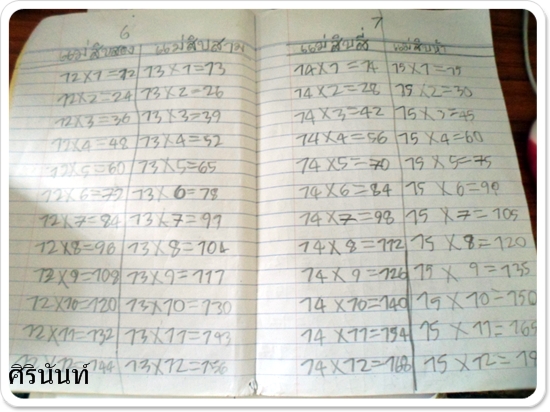 6
แม่สิบสอง แม่สิบสาม
12×1=12 13×1=13
12×2=24 13×2=26
12×3=36 13×3=39
12×4=48 13×4=52
12×5=60 13×5=65
12×6=72 13×6=78
12×7=84 13×7=91
12×8=96 13×8=104
12×9=108 13×9=117
12×10=120 13×10=130
12×11=132 13×11=143
144 13×12=156
7
แม่สิบสี่ แม่สิบห้า
14×1=14 15×1=15
14×2=28 15×2=30
14×3=42 15×3=45
14×4=56 15×4=60
14×5=70 15×5=75
14×6=84 15×6=90
14×7=98 15×7=105
14×8=112 15×8=120
14×9=126 15×9=135
14×10=140 15×10=150
14×11=154 15×11=165
14×12=168 15×12=
ศิรินันท์